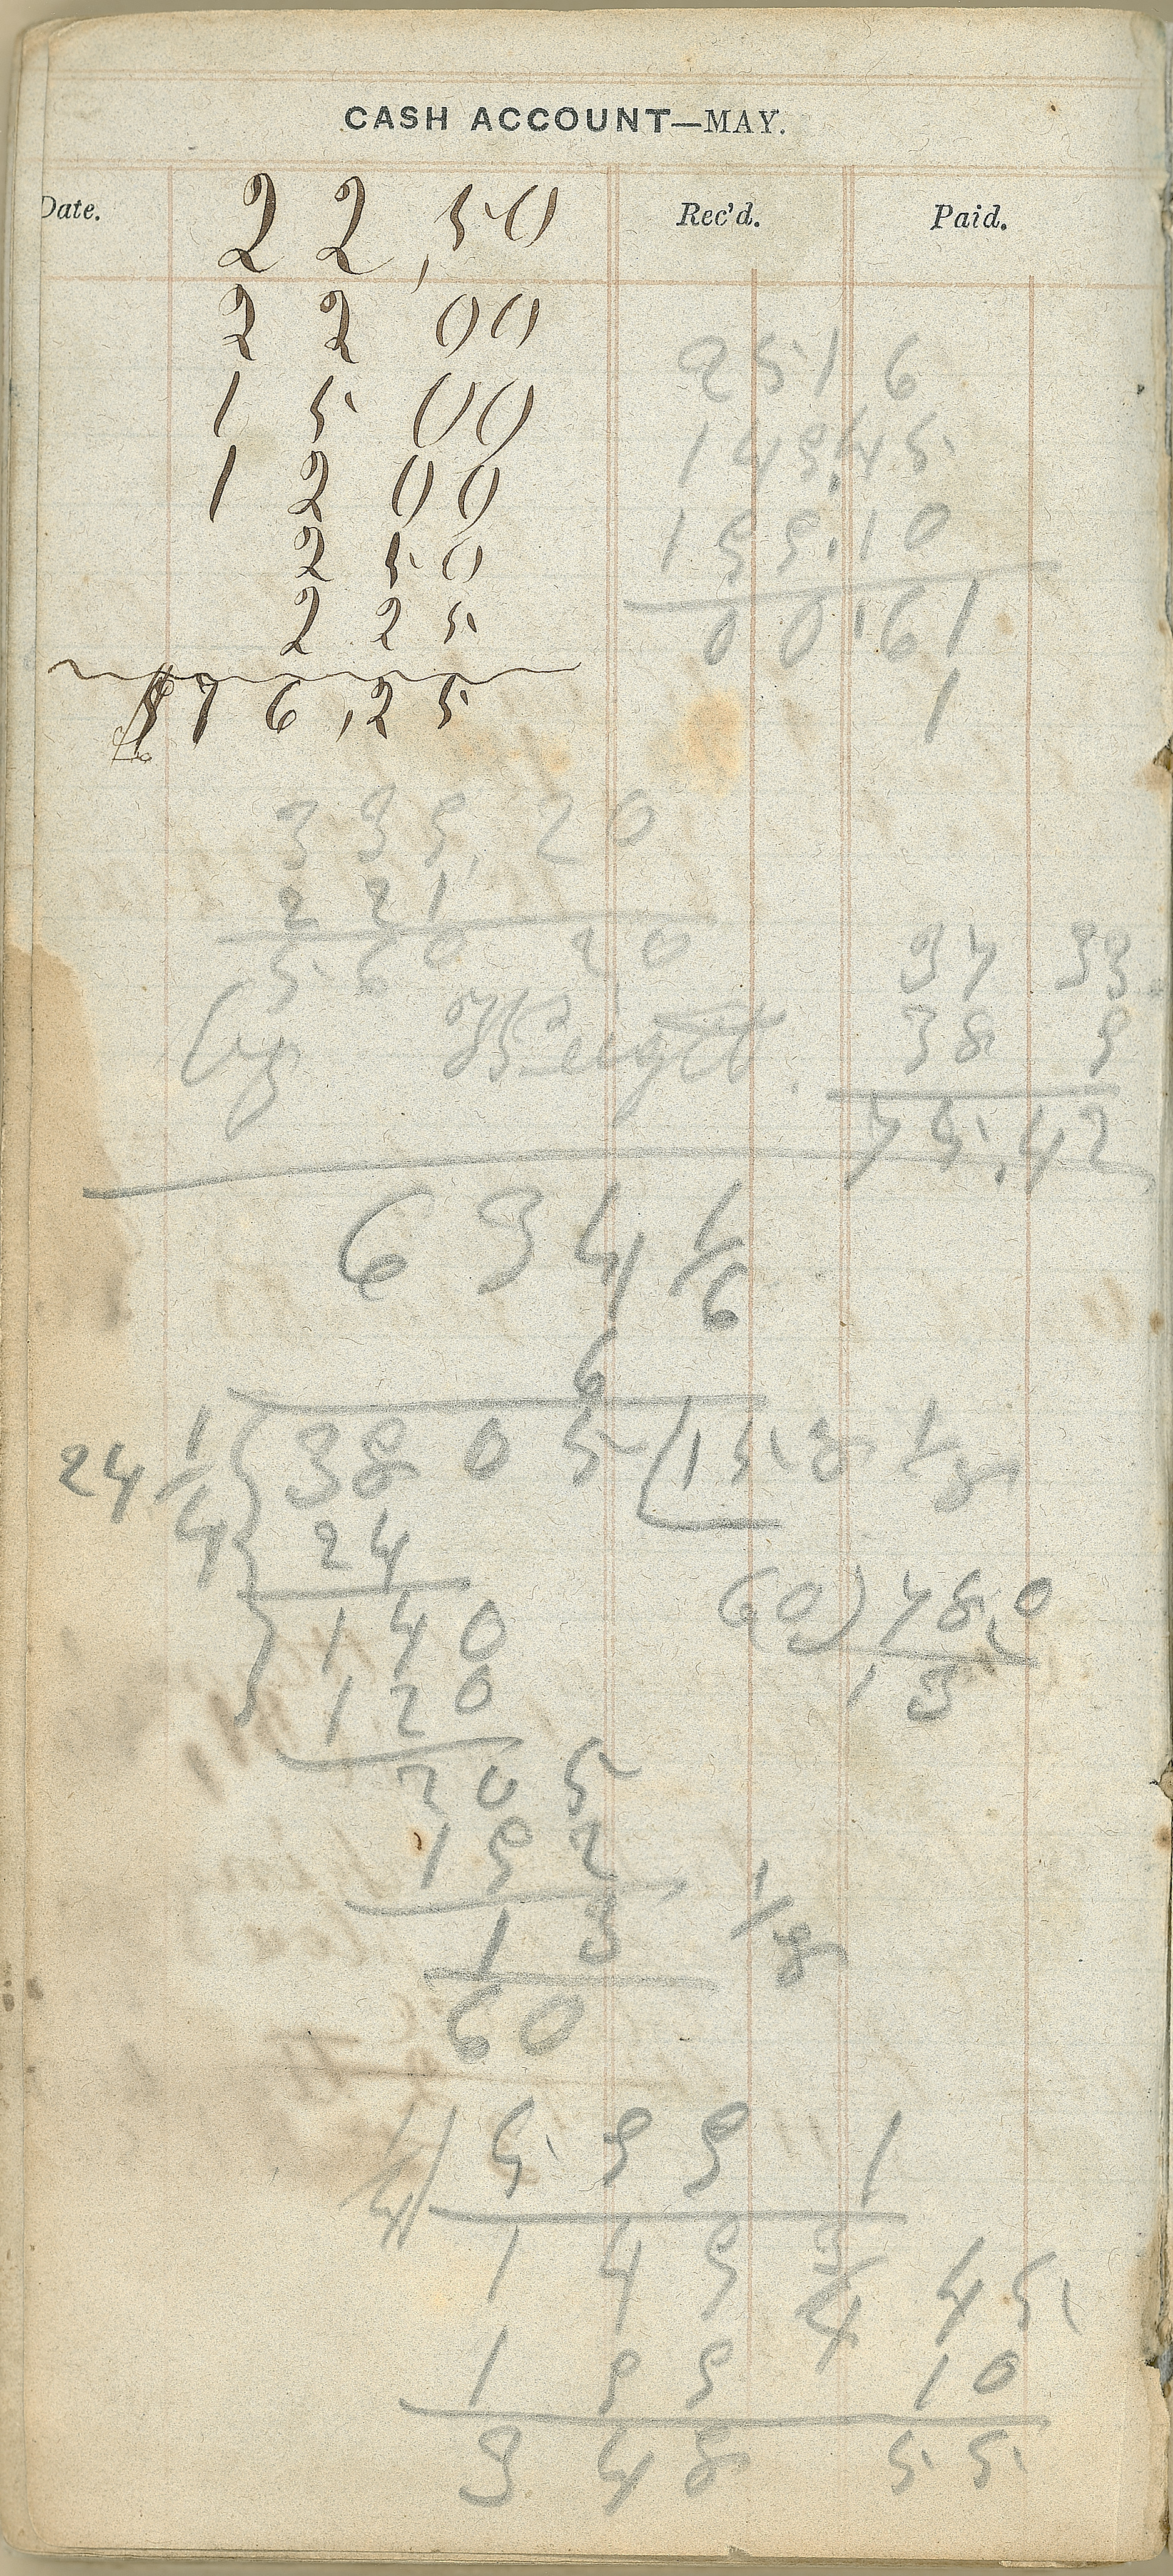 CASH ACCOUNT—MAY.
Date. Rec'd. Paid.
22,50
22 00
15 00
12 00
2 50
2 25
$76,25
2516
149.45
199.10
00.61
1
339,20
221
560 20
37 33
38 9
75.42
634 1/6
6
24 1/4 3805 158 1/8
24
140
120
205
192
13 1/8
60
60) 78.0
13
4 599 1
149 3/4 45
199 10
348 55